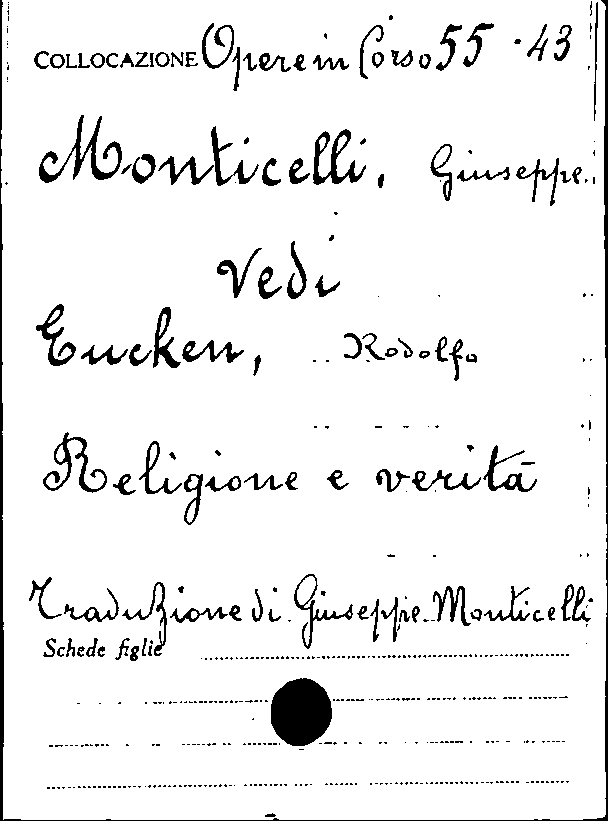 COLLOCAZIONE Opere in Corso 55 · 43
Monticelli, Giuseppe.
Vedi
Eucken, Rodolfo
Religione e verità
Traduzione di Giuseppe Monticelli
Schede figlie